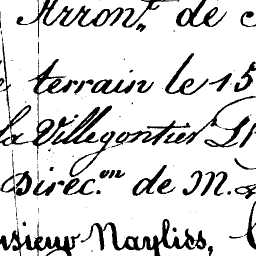 Arron.t de
terrain le 15
la Villegontier
Direc.on de M.
Naylies,